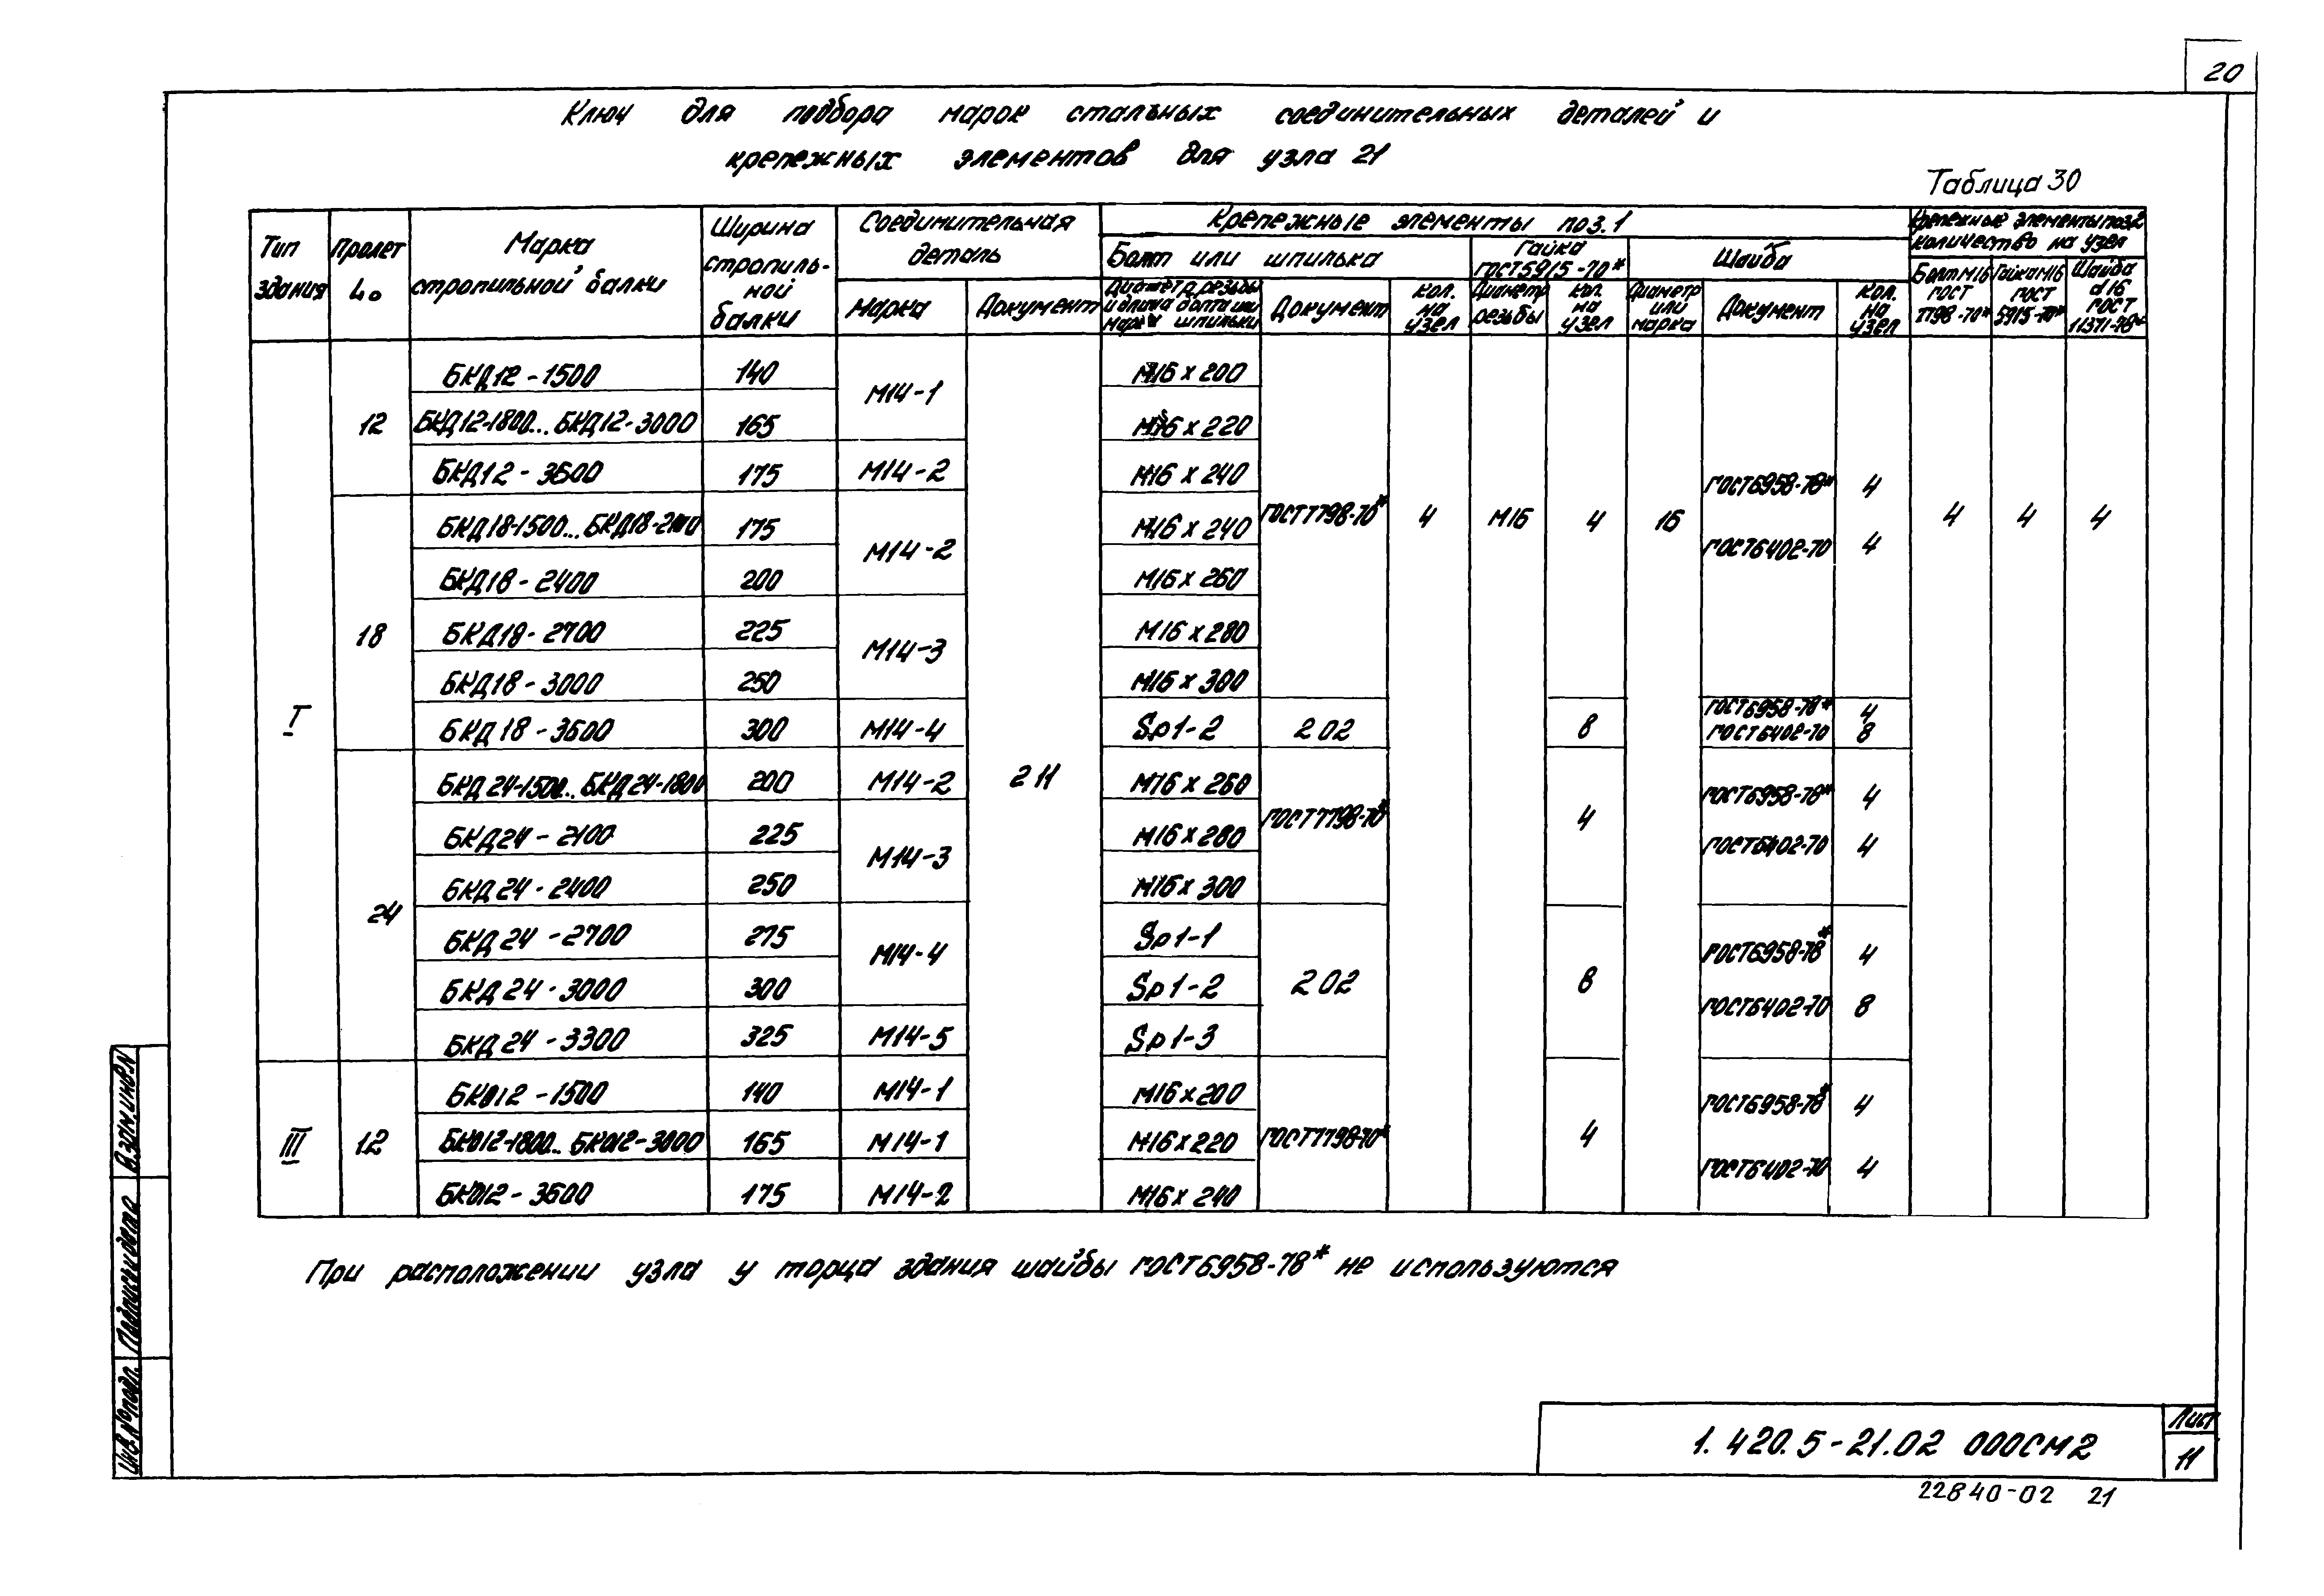 20
Ключ для подбора марок стальных соединительных деталей и
крепежных элементов для узла 21
Таблица 30
Тип здания
Пролет L₀
Марка стропильной балки
Ширина стропиль-ной балки
Соединительная деталь
Марка
Документ
Крепежные элементы поз.1
Болт или шпилька
Диаметр резьбы и длина болта или марка шпильки
Документ
Кол. на узел
Гайка ГОСТ5915-70*
Диаметр резьбы
Кол. на узел
Шайба
Диаметр или марка
Документ
Кол. на узел
Крепежные элементы поз.2 количество на узел
Болт М16 ГОСТ 7798-70*
Гайка М16 ГОСТ 5915-70*
Шайба d16 ГОСТ 11371-78*
I
12
БКД12-1500 140 М14-1 М16х200
БКД12-1800... БКД12-3000 165 М16х220
БКД12-3600 175 М14-2 М16х240
ГОСТ7798-70* 4 М16 4 16 ГОСТ6958-78* 4
ГОСТ6402-70 4
4 4 4
18
БКД18-1500... БКД18-2100 175 М14-2 М16х240
БКД18-2400 200 М16х260
БКД18-2700 225 М14-3 М16х280
БКД18-3000 250 М16х300
БКД18-3600 300 М14-4 Sp1-2 202 8 ГОСТ6958-78* 4
ГОСТ6402-70 8
211
24
БКД24-1500... БКД24-1800 200 М14-2 М16х260 ГОСТ7798-70* 4 ГОСТ6958-78* 4
БКД24-2100 225 М14-3 М16х280 ГОСТ6402-70 4
БКД24-2400 250 М16х300
БКД24-2700 275 М14-4 Sp1-1 ГОСТ6958-78* 4
БКД24-3000 300 Sp1-2 202 8 ГОСТ6402-70 8
БКД24-3300 325 М14-5 Sp1-3
III
12
БКО12-1500 140 М14-1 М16х200 ГОСТ6958-78* 4
БКО12-1800... БКО12-3000 165 М14-1 М16х220 ГОСТ7798-70* 4
БКО12-3600 175 М14-2 М16х240 ГОСТ6402-70 4
При расположении узла у торца здания шайбы ГОСТ6958-78* не используются
Взам.инв.N
Подпись и дата
Инв.№подл.
1.420.5-21.02 000СМ2
Лист
11
22840-02 21